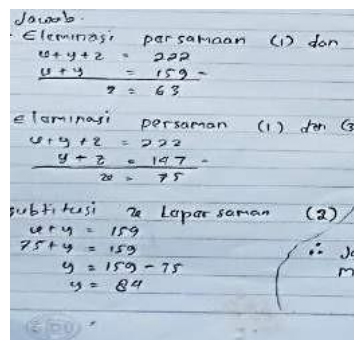 Jawab.
- Eleminasi persamaan (1) dan
x+y+z = 222
x+y = 159 -
z = 63
Eleminasi persaman (1) dan (3
x+y+z = 222
y+z = 147 -
x = 75
subtitusi x kepersaman (2)
x+y = 159
75+y = 159
y = 159-75
y = 84
∴ Ja
m